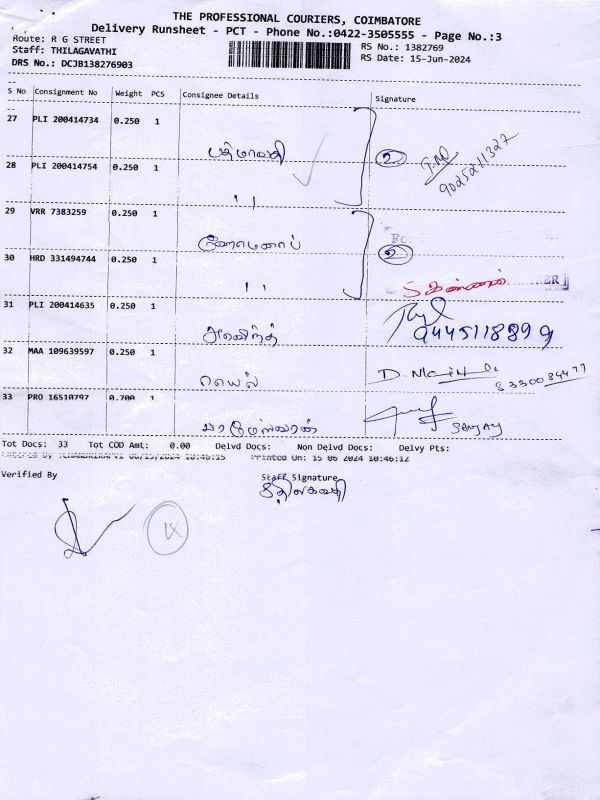 THE PROFESSIONAL COURIERS, COIMBATORE
Delivery Runsheet - PCT - Phone No.:0422-3505555 - Page No.:3
Route: R G STREET
Staff: THILAGAVATHI
DRS No.: DCJB138276903
RS No.: 1382769
RS Date: 15-Jun-2024
S No Consignment No Weight PCS Consignee Details Signature
27 PLI 200414734 0.250 1
பத்மாவதி
28 PLI 200414754 0.250 1
2
9025211327
''
29 VRR 7383259 0.250 1
30 HRD 331494744 0.250 1
2
''
31 PLI 200414635 0.250 1
9445118899
அரவிந்த்
32 MAA 109639597 0.250 1
33 PRO 16510797 0.700 1
SANJAY
Tot Docs: 33 Tot COD Amt: 0.00 Delvd Docs: Non Delvd Docs: Delvy Pts:
Printed On: 15 06 2024 10:46:12
Verified By
Staff Signature